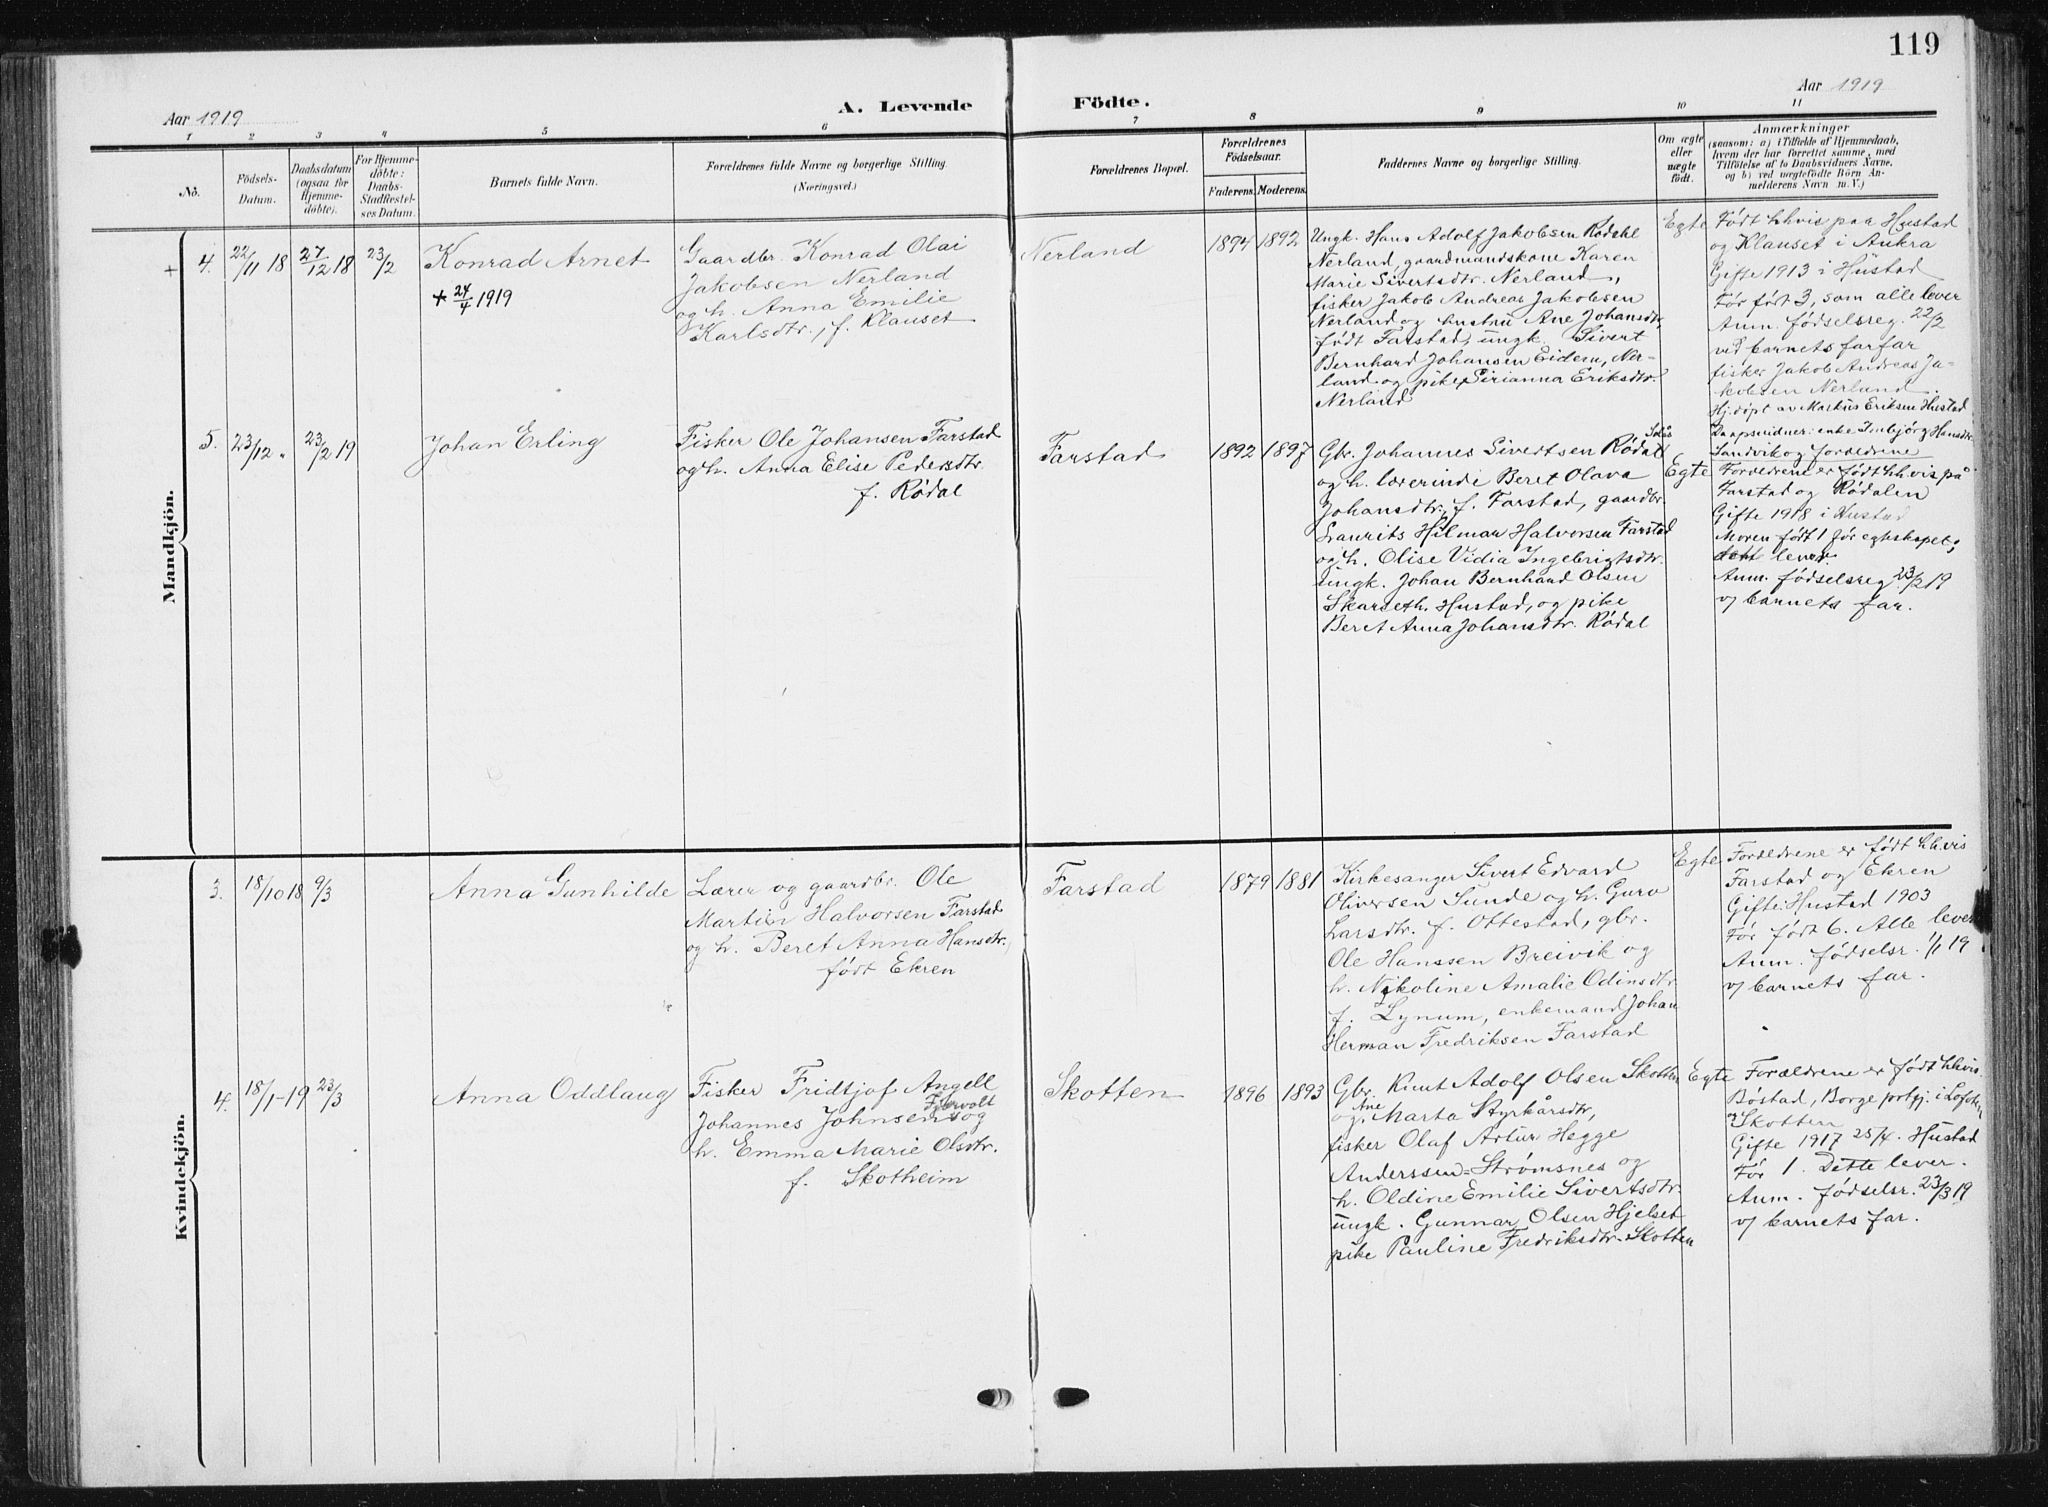 119
Aar 1919
A. Levende Födte.
Aar 1919
1 2 3 4 5 6 7 8 9 10 11
No.
Födsels-
Datum.
Daabsdatum
(ogsaa for
Hjemme-
döbte).
For Hjemme-
döbte:
Daabs-
Stadfæstel-
ses Datum.
Barnets fulde Navn.
Forældrenes fulde Navne og borgerlige Stilling.
(Næringsvei.)
Forældrenes Bopæl.
Forældrenes
Födselsaar.
Faderens. Moderens.
Faddernes Navne og borgerlige Stilling.
Om ægte
eller
uægte
födt.
Anmærkninger
(saasom: a) i Tilfælde af Hjemmedaab,
hvem der har forrettet samme, med
Tilföielse af to Daabsvidners Navne,
og b) ved uægtefödte Börn An-
melderens Navn m. V.)
Mandkjön.
+ 4. 22/11 18 27/12 18 23/2
Konrad Arnet
+ 24/4 1919
Gaardbr. Konrad Olai
Jakobsen Nerland
og h. Anna Emilie
Karlsdtr., f. Klauset
Nerland
1894 1892
Ungk. Hans Adolf Jakobsen Rødahl
Nerland, gaardmandskone Karen
Marie Sivertsdtr. Nerland,
fisker Jakob Andreas Jakobsen
Nerland og hustru Ane Johansdtr,
født Farstad, ungk. Sivert
Bernhard Johansen Eidem, Ner-
land og pike Sirianna Eriksdtr.
Nerland
Egte
Født hhvis paa Hustad
og Klauset i Aukra
Gifte 1913 i Hustad
Før født 3, som alle lever
Anm. fødselsreg. 22/2
ved barnets farfar
fisker Jakob Andreas Ja-
kobsen Nerland.
Hj. døpt av Markus Eriksen Hustad
Daapsvidner: enke Inbjørg Hansdtr.
Sandvik og forældrene
5. 23/12 " 23/2 19
Johan Erling
Fisker Ole Johansen Farstad
og h. Anna Elise Pedersdtr.
f. Rødal
Farstad
1892 1897
Gbr. Johannes Sivertsen Rødal
og h. lærerinde Beret Olava
Johansdtr., f. Farstad, gaardbr.
Laurits Hilmar Halvorsen Farstad
og h. Olise Vidia Ingebrigtsdtr.
ungk. Johan Bernhard Olsen
Skarseth. Hustad, og pike
Beret Anna Johansdtr. Rødal
Egte
Forældrene er født hhvis på
Farstad og Rødalen
Gifte 1918 i Hustad
Moren født 1 før egteskapet;
lever.
Anm. fødselsreg 23/2 19
v/ barnets far.
Kvindekjön.
3. 18/10 18 9/3
Anna Gunhilde
Lærer og gaardbr. Ole
Martin Halvorsen Farstad
og h. Beret Anna Hansdtr.,
født Ekren
Farstad
1879 1881
Kirkesanger Sivert Edvard
Oliversen Sunde og h. Guro
Larsdtr. f. Ottestad, gbr.
Ole Hanssen Breivik og
h. Nikoline Amalie Odinsdtr.
f. Lynum, enkemand Johan
Herman Fredriksen Farstad
Egte
Forældrene er født hhvis
Farstad og Ekren
Gifte: Hustad 1903
Før født 6. Alle lever
Anm. fødselsr. 1/1 19
v/ barnets far.
4. 18/1-19 23/3
Anna Oddlaug
Fisker Fridtjof Angell
Johannes Johnsen og
h. Emma Marie Olsdtr.
f. Skotheim
Skotten
1896 1893
Gbr. Knut Adolf Olsen Skotten
og Ane Marta Styrkårsdtr,
fisker Olaf Artur Hegge
Anderssen=Strømsnes og
h. Oldine Emilie Sivertsdtr.
ungk. Gunnar Olsen Hjelset
pike Pauline Fredriksdtr. Skotten
Egte
Forældrene er født hhvis.
Bøstad, Borge prstgj. i Lofoten
og Skotten
Gifte 1917 25/4. Hustad
Før 1. Dette lever.
Anm. fødselsr. 23/3 19
v/ barnets far.